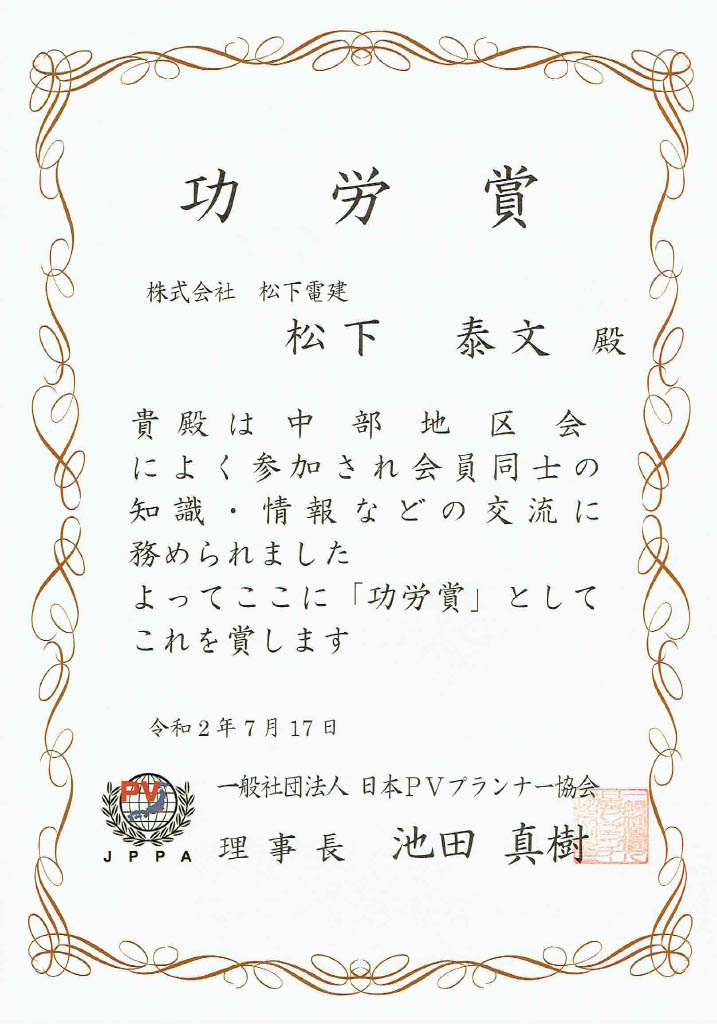 功労賞
株式会社 松下電建
松下 泰文 殿
貴殿は中部地区会
によく参加され会員同士の
知識・情報などの交流に
務められました
よってここに「功労賞」として
これを賞します
令和2年7月17日
PV
一般社団法人 日本PVプランナー協会
JPPA
理事長 池田 真樹